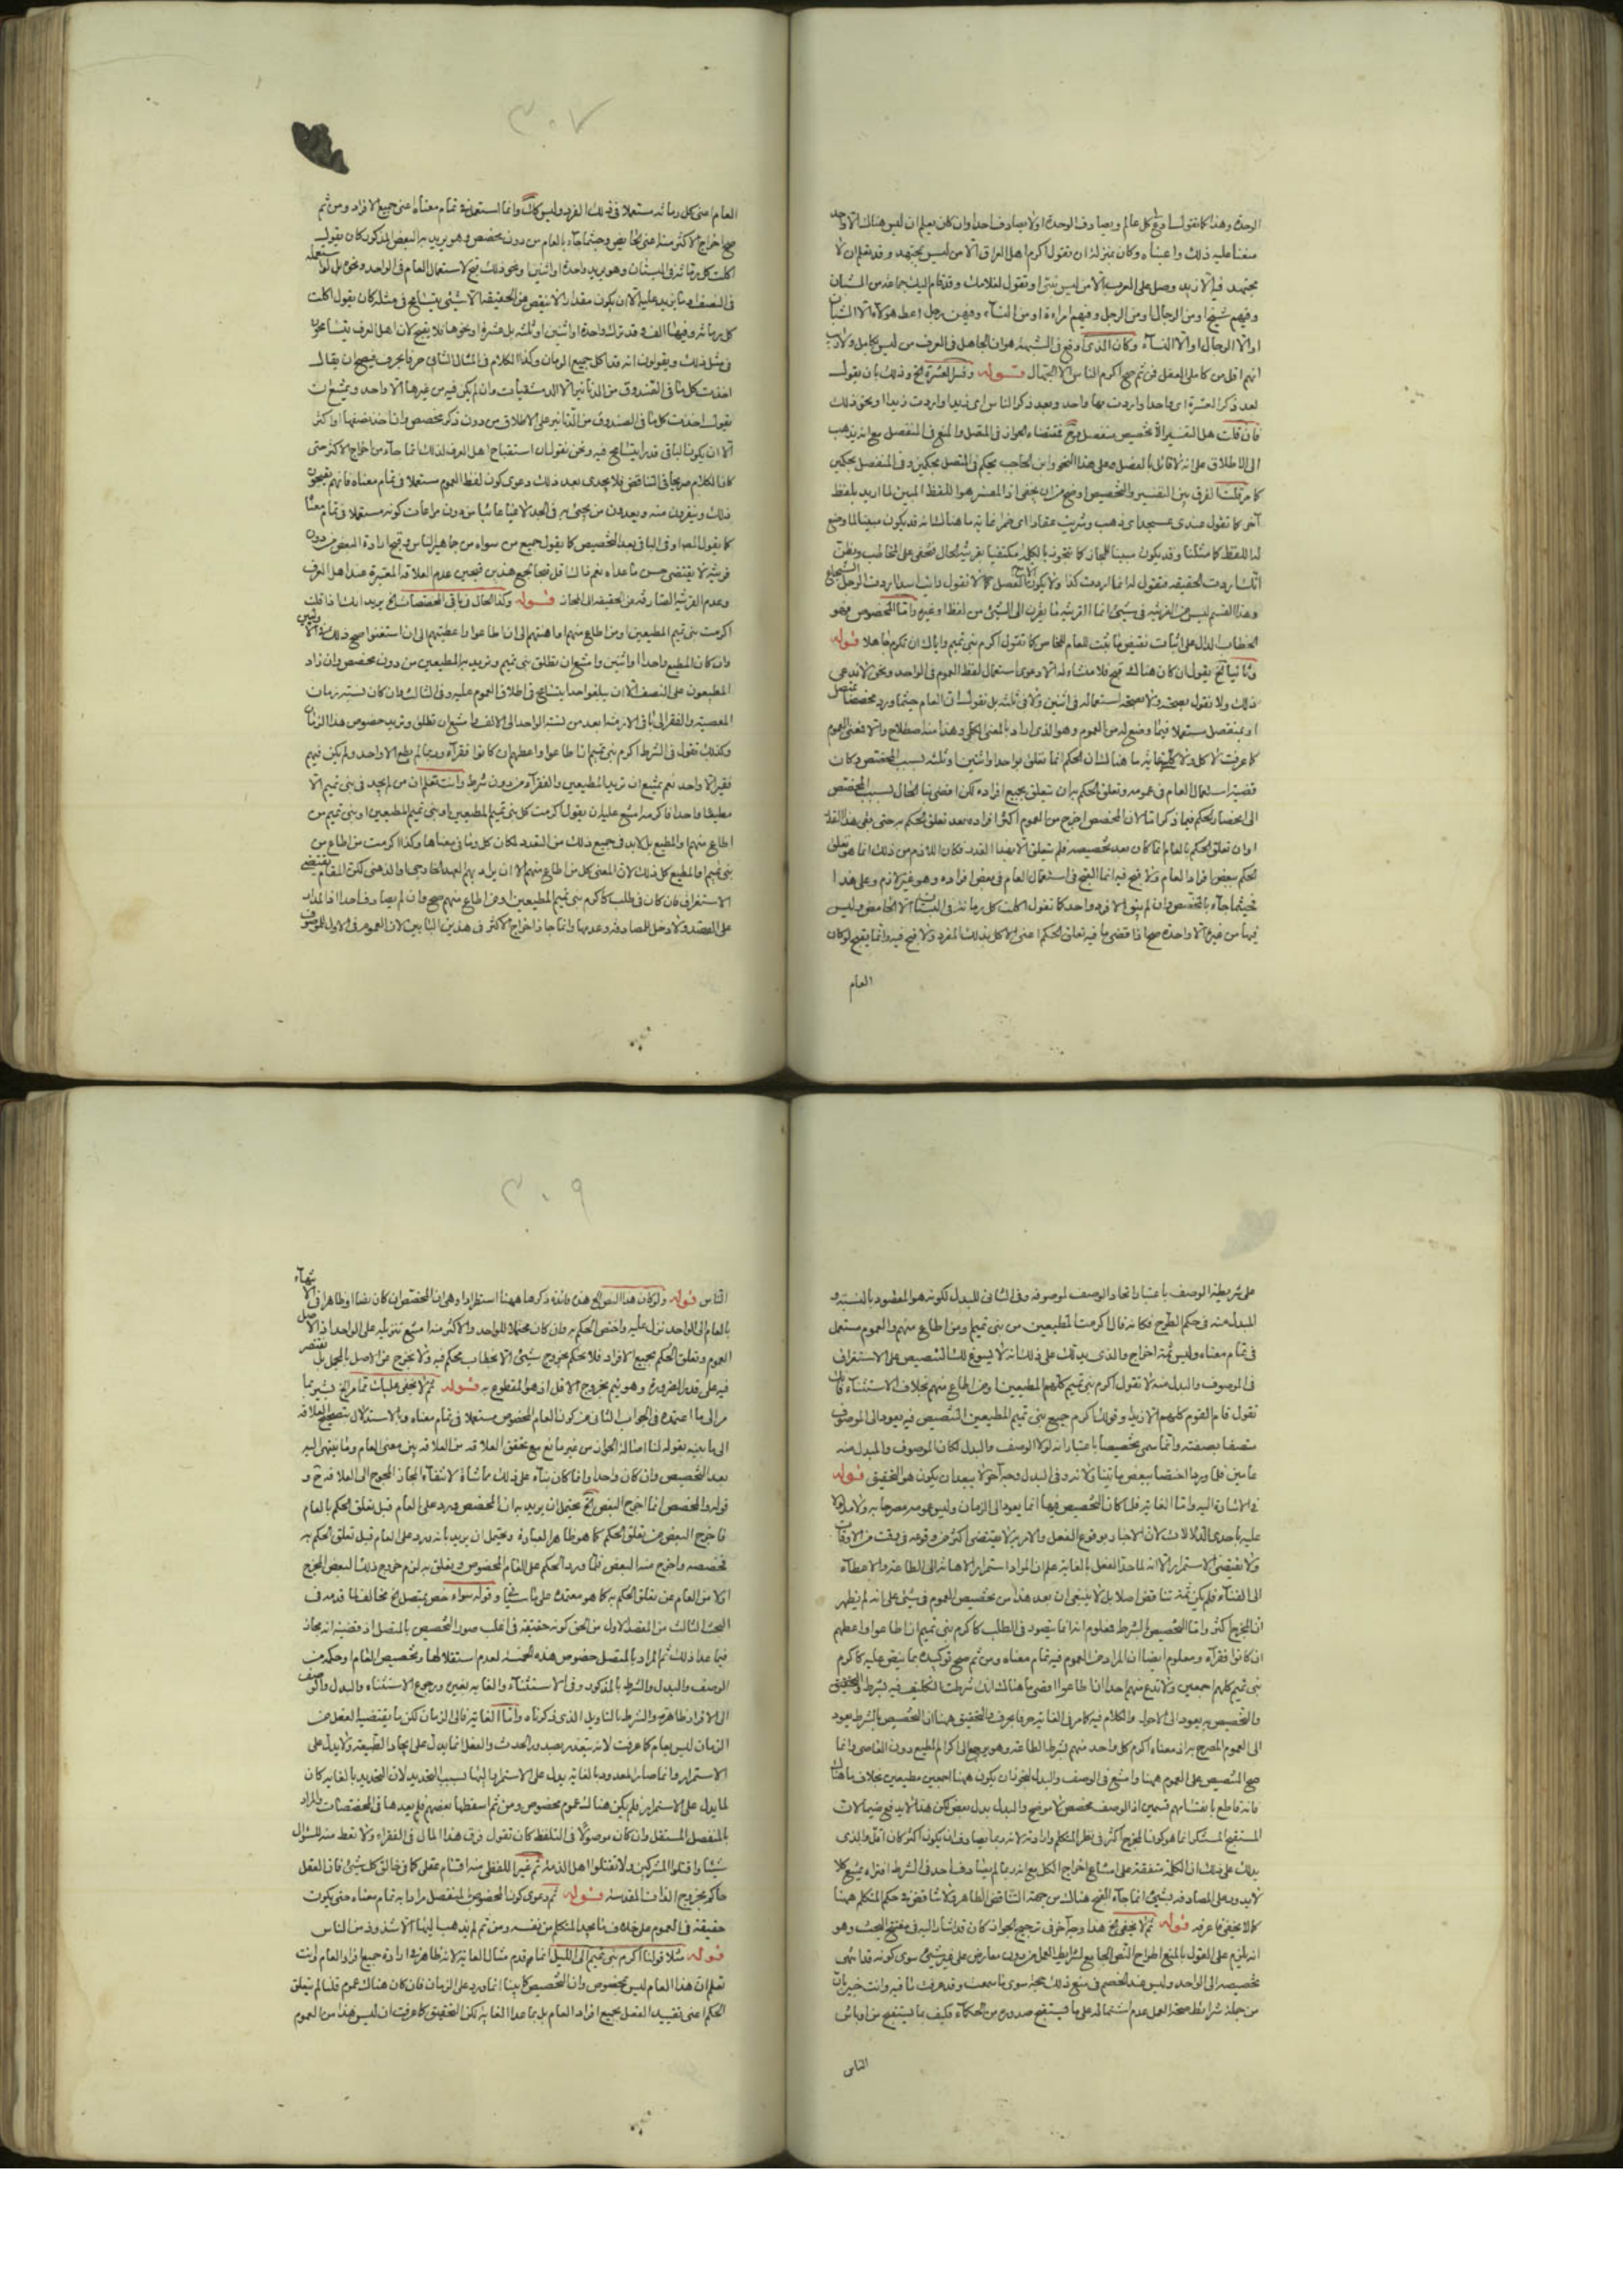 الوحدة وهذا كما نقول لسا كل عالم ويصادف الوحدة اولا يصادف احدا وان كان يعلم ان ليس هناك الا واحد
وفيهم شيخ او من الرجال او من الرجل وفيهم امراءة او من النساء وفيهن رجل اعط هولاء الا الشبان
او الا الرجال او الا النساء وكان الذى اوقع فى الشبهة هو ان الجاهل فى العرف من ليس بكامل ولا ريب
انهم اقل من كاملى العقل فمن ثم صح اكرم الناس الا الجهال قوله وفسر العشرة الخ وذلك بان يقول
بعد ذكر العشرة اى واحدا واردت بها واحد وبعد ذكر الناس اى زيدا واردت زيدا ونحو ذلك
فان قلت هل التفسير الا تخصيص بمنفصل فمقتضاه الجواز فى المتصل والمنع فى المنفصل مع انه يذهب
الى الاطلاق على انه لا قائل بالفصل وعلى هذا النحو وابن الحاجب يحكم فى المتصل بحكمين وفى المنفصل بحكمين
الفرق بين التفسير والتخصيص اوضح من ان يخفى اذ المفسر هو اللفظ المبين لما اريد بلفظ
آخر كما تقول عندى عسجد اى ذهب وشربت عقارا اى خمرا غاية ما هناك انه قد يكون مبينا لما وضع
الخطاب الدال على اثبات نقيض ما يثبت للعام للخاص كما تقول اكرم بنى تميم واياك ان تكرم جاهلا قوله
وثانيا الخ يقول ان كان هناك قبح فلا منشاء له الا دعوى استعمال لفظ العموم فى الواحد ونحن لا ندعى
ذلك ولا نقول بصحته ولا بصحة استعماله فى اثنين ولا فى ثلثة بل نقول ان العام حيثما ورد مخصصا بمتصل
او بمنفصل مستعمل فيما وضع له من العموم وهو الذى اراد بالمعنى الكلى وهذا منه اصطلاح والا فمعنى العموم
كما عرفت لا كلى غاية ما هناك ان الحكم انما تعلق بواحد او اثنين او ثلثة بسبب المخصص وكان
قضية استعمال العام فى عمومه وتعلق الحكم به ان يتعلق بجميع افراده لكن افضى بنا الحال بسبب المخصص
الى انحصار الحكم فيما ذكر اما لان المخصص اخرج من العموم اكثر افراده بعد تعلق الحكم به حتى بقى هذا القدر
او ان تعلق الحكم بالعام انما كان بعد تخصيصه فلم يتعلق الا بهذا القدر فكان اللازم من ذلك انما هو تعلق
الحكم ببعض افراد العام ولا قبح فيه انما القبح فى استعمال العام فى بعض افراده وهو غير لازم وعلى هذا
فحيثما جاء بالمخصص وان لم يبق الا فرد واحد كما تقول اكلت كل رمانة فى البستان الا الحامض وليس
فيها من غيره الا واحدة صح اذ اقضى ما فيه تعلق الحكم اعنى الاكل بذلك المفرد ولا قبح فيه وانما يقبح لو كان
العام
٣٠٧
العام اعنى كل رمانة مستعملا فى ذلك الفرد وليس كذلك وانما استعمل فى تمام معناه اعنى جميع الافراد ومن ثم
صح اخراج الاكثر منه اعنى الحامض وحيثما جاء بالعام من دون مخصص وهو يريد به البعض المذكور كان يقول
اكلت كل رمانة فى البستان وهو يريد واحدة او اثنين او نحو ذلك قبح لاستعمال العام فى الواحد ونحوه بل لو استعمله
فى النصف وما يزيد عليه الا ان يكون مقدارا لا ينقص عن الحقيقة الا بشئ يتسامح فى مثله كان يقول اكلت
كل رمانة وفيها الف وقد ترك واحدة او اثنين او ثلثة بل عشرة او نحوها فلا يقبح لان اهل العرف يتسامحون
فى مثل ذلك ويقولون انه قد اكل جميع الرمان وكذا الكلام فى المثال الثانى حرفا بحرف فيصح ان يقال
اخذت كل ما فى الصندوق من الدنانير الا الدمشقيات وان لم يكن فيه من غيرها الا واحد ويمتنع ان
يقول اخذت كل ما فى الصندوق من الدنانير على الاطلاق من دون ذكر مخصص وانما اخذ نصفها او اكثر
الا ان يكون الباقى قدرا يتسامح فيه ونحن نقول ان استقباح اهل العرف لذلك انما جاء من اخراج الاكثر حتى
كان الكلام صريحا فى التناقض فلا يجدى بعد ذلك دعوى كون لفظ العموم مستعملا فى تمام معناه فانهم يقبحون
ذلك وينفرون منه ويعدون من يجئ به فى الجد لاغيا عابثا من دون مراعات كونه مستعملا فى تمام معناه
وعدم القرينة الصارفة عن الحقيقة الى المجاز قوله وكذا الحال فى باقى المخصصات الخ يريد انك اذا قلت
اكرمت بنى تميم المطيعين او من اطاع منهم او اهنتهم الى ان اطاعوا واعطيتهم الى ان استغنوا صح ذلك
وان كان المطيع واحدا او اثنين وامتنع ان تطلق بنى تميم وتريد به المطيعين من دون مخصص وان زاد
المطيعون على النصف الا ان يبلغوا حدا يتسامح فى اطلاق العموم عليه وفى الثالث وان كان نسبة زمان
المعصية والفقر الى باقى الازمنة ابعد من نسبة الواحد الى الالف وامتنع ان تطلق وتريد خصوص هذا الزمان
وكذلك تقول فى الشرط اكرم بنى تميم ان اطاعوا واعطهم ان كانوا فقراء وربما لم يطع الا واحد ولم يكن فيهم
فقير الا واحد نعم يمتنع ان تريد المطيعين والفقراء من دون شرط وانت تعلم ان من لم يجد فى بنى تميم الا
مطيعا واحدا فاكرمه امتنع عليه ان يقول اكرمت كل بنى تميم المطيعين او بنى تميم المطيعين او بنى تميم من
اطاع منهم او المطيع بل لا بد فى جميع ذلك من التعدد لمكان كل وما فى معناها وكذا اكرمت من اطاع من
بنى تميم او المطيع كل ذلك لان المعنى كل من اطاع منهم الا ان يراد بهم العهد الخارجى او الذهنى لكن المقام يقتضى
الاستغراق فان كان فى طلب كاكرم بنى تميم المطيعين او من اطاع منهم صح وان لم يصادف احدا اذ المدار
على القصد ولا دخل للمصادفة وعدمها وانما جاز اخراج الاكثر فى هذين البابين لان العموم فى الاول للموصوف
على شريطة الوصف باعتبار اتحاد الوصف لموصوفه وفى الثانى للبدل لكونه هو المقصود بالنسبة و
المبدل منه فى حكم الطرح فكانه قال اكرمت المطيعين من بنى تميم ومن اطاع منهم والعموم مستعمل
فى تمام معناه وليس ثمة اخراج والذى يدلك على ذلك انه لا يسوغ لك التنصيص على الاستغراق
فى الموصوف والمبدل منه لا تقول اكرم بنى تميم كلهم المطيعين او من اطاع منهم بخلاف الاستثناء فان
تقول قام القوم كلهم الا زيدا وقولك اكرم جميع بنى تميم المطيعين التنصيص فيه يعود الى الموصوف
متصفا بصفته وانما سمى تخصيصا باعتبار انه لولا الوصف والبدل لكان الموصوف والمبدل منه
فى الاشارة اليه واما الغاية فلما كان التخصيص فيها انما يعود الى الزمان وليس عمومه مصرحا به ولا مدلولا
عليه باحدى الدلالات لان الاخبار بوقوع الفعل والامر به لا يقتضى اكثر من وقوعه فى وقت من الاوقات
ولا يقتضى الاستمرار الا انه لما حد الفعل بالغاية علم ان المراد استمرار الاهانة الى الطاعة والاعطاء
الى الغناء فلم يكن ثمة تناقض اصلا بل لا ينبغى ان يعد هذا من تخصيص العموم فى شئ على انه لم يظهر
ان المخرج اكثر واما التخصيص بالشرط فمعلوم انه انما يتصور فى الطلب كاكرم بنى تميم ان اطاعوا واعطهم
ان كانوا فقراء ومعلوم ايضا ان المراد من العموم فيه تمام معناه ومن ثم صح توكيده بما ينص عليه كاكرم
بنى تميم كلهم اجمعين ولا تدع منهم احدا ان اطاعوا اقضى ما هناك انك شرطت التكليف فيه بشرط والتحقيق
والتخصيص به يعود الى الاحوال والكلام فيه كما مر فى الغاية حرفا بحرف والتحقيق ههنا ان التخصيص بالشرط يعود
الى العموم المصرح به اذ معناه اكرم كل واحد منهم بشرط الطاعة وهو يرجع الى اكرام المطيع دون العاصى وانما
صح التنصيص على العموم ههنا وامتنع فى الوصف والبدل لجواز ان يكون ههنا اجمعين مطيعين بخلاف ما هناك
فانه قاطع بانقسامهم قسمين اذ الوصف مخصص لا موضح والبدل بدل بعض لكن هذا لا يدفع ضيما لان
المستقبح المستنكر انما هو كون المخرج اكثر فى نظر المتكلم وارادته لانه ربما يصادف ان يكون اكثر كان اقل والذى
يدلك على ذلك ان الكلمة متفقة على امتناع اخراج الكل مع انه ربما لم يصادف احد فى الشرط
لا يدور على المصادفة بشئ انما جاء القبح هناك من جهة التناقض الظاهر ولا تناقض فى حكم المتكلم ههنا
كما لا يخفى ما عرفه قوله ثم لا يخفى الخ هذا وجه آخر فى ترجيح الجواز كان قد اشار اليه فى مفتتح البحث وهو
انه يلزم على القول بالمنع اطراح النص الجامع لشرايط العمل من دون معارض على غير شئ سوى كونه قد انتهى
تخصيصه الى الواحد وليس عند الخصم فى منع ذلك حجة سوى ما سمعت وقد عرفت ما فيه وانت خبير بان
من جملة شرائط صحة العمل عدم اشتماله على ما يستقبح صدوره من الحكماء فكيف بما يستقبح من اوباش
الناس
٣٠٩
الناس قوله ولو كان هذا النص الخ هذه فائدة ذكرها ههنا استطرادا وهى ان المخصص ان كان نصا او ظاهرا فى الانتهاء
بالعام الى الواحد نزل عليه واختص الحكم به وان كان محتملا للواحد والاكثر منه امتنع تنزيله على الواحد اذ الاصل
العموم وتعلق الحكم بجميع الافراد فلا يحكم بخروج شئ الا بخطاب يحكم فيه ولا يخرج عن الاصل بالمجمل بل يقتصر
فيه على قدر الضرورة وهو يتم بخروج الاقل اذ هو المقطوع به قوله ثم لا يخفى عليك تمام الخ يشير بما
مر الى ما اعتمده فى الجواب الثانى من كون العام المخصوص مستعملا فى تمام معناه وبالاستدلال بتصحيح العلاقة
الى ما بينه بقوله لنا اصالة الجواز من غير مانع مع تحقق العلاقة من العلاقة بين معنى العام وما ينتهى اليه
بعد التخصيص وان كان واحدا وانما كان بناء على ذلك مماشاة لانتفاء المجاز المحوج الى العلاقة ح و
قوله والمخصص انما اخرج البعض الخ يحتمل ان يريد به ان المخصص ورد على العام قبل تعلق الحكم بالعام
فاخرج البعض من تعلق الحكم كما هو ظاهر العبارة ويحتمل ان يريد بانه ورد على العام قبل تعلق الحكم به
فخصصه واخرج منه البعض فلما ورد الحكم على العام المخصوص وتعلق به لزم خروج ذلك البعض المخرج
اولا من العام عن تعلق الحكم به كما هو معتمده على ما سيأتى وقوله سواء خص بمتصل الخ مخالف لما قدمه فى
البحث الثالث من الفصل الاول من الحق كونه حقيقة فى اغلب صور التخصيص بالمتصل اذ قضيته انه مجاز
فيما عدا ذلك ثم المراد بالمتصل خصوص هذه الخمسة لعدم استقلالها وتخصيص العام او حكمه من
الوصف والبدل والشرط بالمذكور وفى الاستثناء والغاية بغيره ورجوع الاستثناء والبدل والوصف
الى الافراد ظاهر والشرط بالتاويل الذى ذكرناه واما الغاية فالى الزمان لكن ما يقتضيه الفعل من
الزمان ليس بعام كما عرفت لانه يتقدر بصدور الحدث والفعل انما يدل على ايجاد الطبيعة ولا يدل على
الاستمرار وانما صار المحدود بالغاية يدل على الاستمرار اليها بسبب التحديد لان التحديد بالغاية كان
لما يدل على الاستمرار فلم يكن هناك عموم مخصوص ومن ثم اسقطها بعضهم فلم يعدها فى المخصصات والمراد
بالمنفصل المستقل وان كان موصولا فى التلفظ كان تقول فرق هذا المال فى الفقراء ولا تعط منه للسؤال
شيئا واقتلوا المشركين ولا تقتلوا اهل الذمة ثم غير اللفظى منه اقسام عقلى كما فى خالق كل شئ فان العقل
حاكم بخروج الذات المقدسة قوله ثم دعوى كون المخصوص بالمنفصل مرادا به تمام معناه حتى يكون
حقيقة فى العموم على خلاف ما يجد المتكلم من نفسه ومن ثم لم يذهب اليها الا شذوذ من الناس
قوله مثلا قولنا اكرم بنى تميم الى الليل انما قدم مثال الغاية لانه ظاهر فى ارادة جميع افراد العام وانت
تعلم ان هذا العام ليس بمخصوص وان التخصيص كما بينا انما ورد على الزمان فان كان هناك عموم فلما لم يتعلق
الحكم اعنى تقييد الفعل بجميع افراد العام بل بما عدا الغاية لكن التحقيق كما عرفت ان ليس هذا من العموم